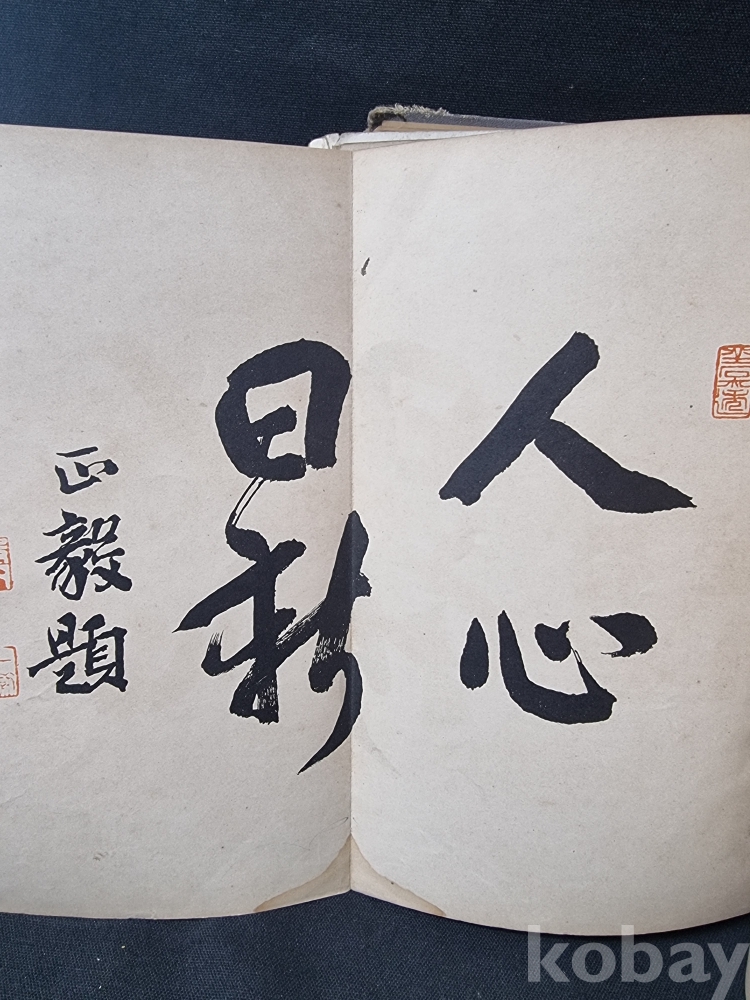 人心
日新
正毅題
kobay